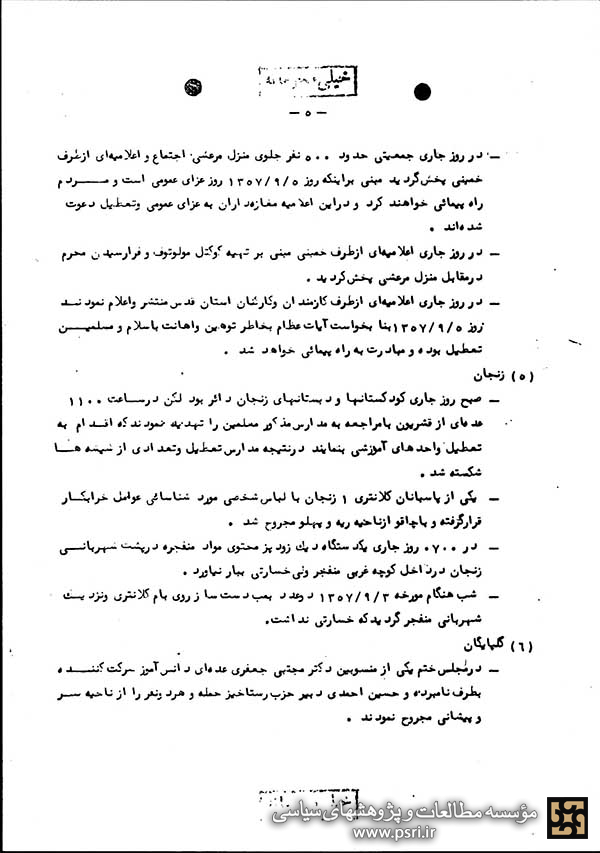 خیلی محرمانه
— ۵ —
— در روز جاری جمعیتی حدود ۵۰۰ نفر جلوی منزل مرعشی اجتماع و اعلامیه‌ای ازطرف
خمینی پخش گردید مبنی براینکه روز ۱۳۵۷/۹/۵ روز عزای عمومی است و مردم
راه پیمائی خواهند کرد و دراین اعلامیه مغازه‌داران به عزای عمومی وتعطیل دعوت
شده‌اند .
— در روز جاری اعلامیه‌ای ازطرف خمینی مبنی بر تهیه کوکتل مولوتوف و فرارسیدن محرم
درمقابل منزل مرعشی پخش گردید .
— در روز جاری اعلامیه‌ای ازطرف کارمندان وکارکنان استان قدس منتشر واعلام نمودند
روز ۱۳۵۷/۹/۵ بنا بخواست آیات عظام بخاطر توهین واهانت باسلام و مسلمین
تعطیل بوده و مبادرت به راه پیمائی خواهد شد .
(۵) زنجان
— صبح روز جاری کودکستانها و دبستانهای زنجان دائر بود لکن درساعت ۱۱۰۰
عده‌ای از قشریون بامراجعه به مدارس مذکور معلمین را تهدید نمودند که اقدام به
تعطیل واحدهای آموزشی بنمایند درنتیجه مدارس تعطیل وتعدادی از شیشه ها
شکسته شد .
— یکی از پاسبانان کلانتری ۱ زنجان با لباس شخصی مورد شناسائی عوامل خرابکار
قرارگرفته و باچاقو ازناحیه ریه و پهلو مجروح شد .
— در ۰۷۰۰ روز جاری یکدستگاه دیگ زودپز محتوی مواد منفجره درپشت شهربانی
زنجان درداخل کوچه غربی منفجر ولی خسارتی ببار نیاورد .
— شب هنگام مورخه ۱۳۵۷/۹/۳ دوعدد بمب دست ساز روی بام کلانتری ونزدیک
شهربانی منفجر گردید که خسارتی نداشت.
(۶) گلپایگان
— درمجلس ختم یکی از منسوبین دکتر مجتبی جعفری عده‌ای دانش آموز حرکت کننده
بطرف نامبرده و حسین احمدی دبیر حزب رستاخیز حمله و هردونفر را از ناحیه سر
و پیشانی مجروح نمودند .
مؤسسه مطالعات و پژوهشهای سیاسی
www.psri.ir